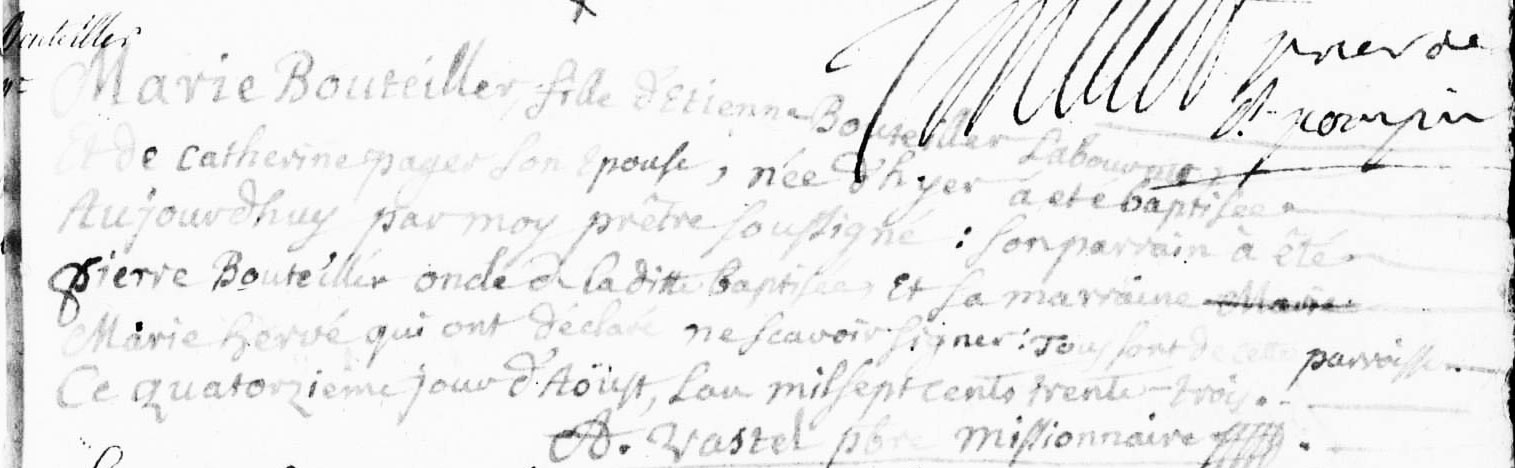 Bouteiller
prier de
St pompin
Marie Bouteiller, fille d'Etienne Bouteiller Laboureur,
Et de Catherine pager son Epouse, née d'hyer à été baptisée
Aujourdhuy par moy prêtre soussigné : son parrain à été
pierre Bouteiller oncle de la ditte baptisée, Et sa marraine Marie
Marie hervé qui ont déclaré ne scavoir signer : Tous sont de cette parroisse
Ce quatorzième jour d'Aöust, L'an mil sept cents trente-trois.
Vastel pbre Missionnaire